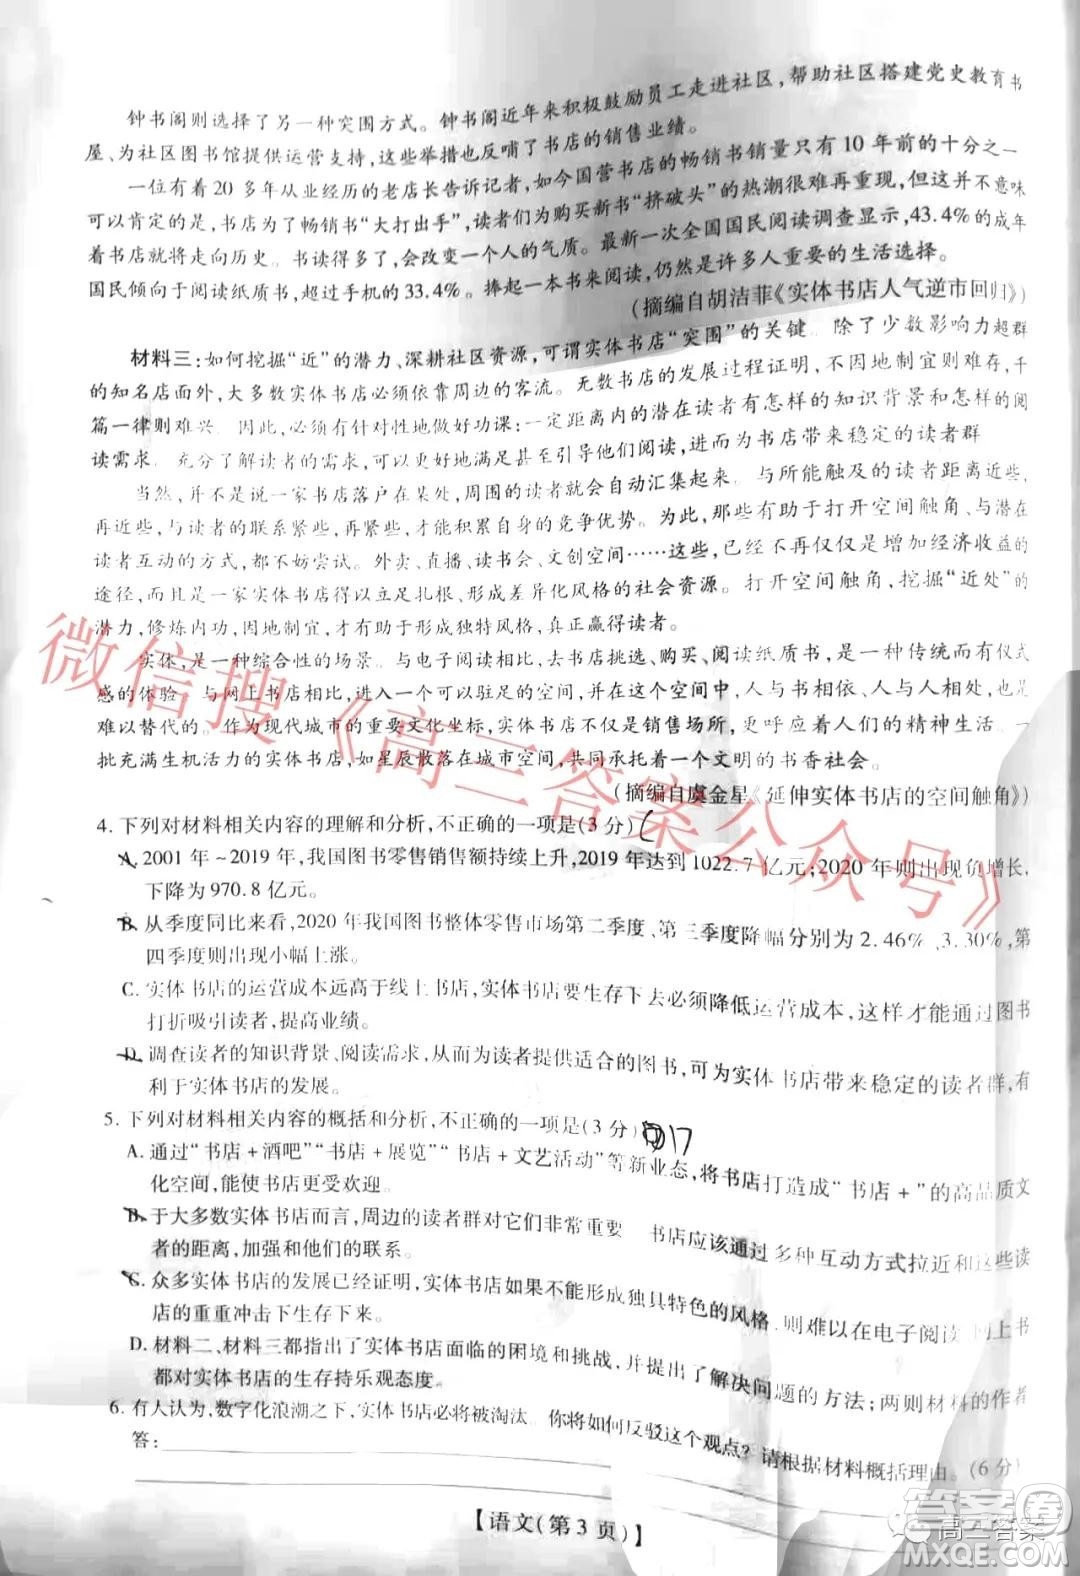 钟书阁则选择了另一种突围方式。钟书阁近年来积极鼓励员工走进社区，帮助社区搭建党史教育书
屋、为社区图书馆提供运营支持，这些举措也反哺了书店的销售业绩。
一位有着 20 多年从业经历的老店长告诉记者，如今国营书店的畅销书销量只有 10 年前的十分之一
可以肯定的是，书店为了畅销书“大打出手”，读者们为购买新书“挤破头”的热潮很难再重现，但这并不意味
着书店就将走向历史。书读得多了，会改变一个人的气质。最新一次全国国民阅读调查显示，43.4%的成年
国民倾向于阅读纸质书，超过手机的 33.4%。捧起一本书来阅读，仍然是许多人重要的生活选择。
（摘编自胡洁菲《实体书店人气逆市回归》）
材料三：如何挖掘“近”的潜力、深耕社区资源，可谓实体书店“突围”的关键。除了少数影响力超群
的知名店面外，大多数实体书店必须依靠周边的客流。无数书店的发展过程证明，不因地制宜则难存，千
篇一律则难兴。因此，必须有针对性地做好功课：一定距离内的潜在读者有怎样的知识背景和怎样的阅
读需求。充分了解读者的需求，可以更好地满足甚至引导他们阅读，进而为书店带来稳定的读者群
当然，并不是说一家书店落户在某处，周围的读者就会自动汇集起来。与所能触及的读者距离近些，
再近些，与读者的联系紧些，再紧些，才能积累自身的竞争优势。为此，那些有助于打开空间触角、与潜在
读者互动的方式，都不妨尝试。外卖、直播、读书会、文创空间……这些，已经不再仅仅是增加经济收益的
途径，而且是一家实体书店得以立足扎根、形成差异化风格的社会资源。打开空间触角，挖掘“近处”的
潜力，修炼内功，因地制宜，才有助于形成独特风格，真正赢得读者。
实体，是一种综合性的场景。与电子阅读相比，去书店挑选、购买、阅读纸质书，是一种传统而有仪式
感的体验。与网上书店相比，进入一个可以驻足的空间，并在这个空间中，人与书相处、人与人相处，也是
难以替代的。作为现代城市的重要文化坐标，实体书店不仅是销售场所，更呼应着人们的精神生活。一
批充满生机活力的实体书店，如星辰散落在城市空间，共同承托着一个文明的书香社会。
（摘编自虞金星《延伸实体书店的空间触角》）
4. 下列对材料相关内容的理解和分析，不正确的一项是(3 分)(
A. 2001 年～2019 年，我国图书零售销售额持续上升，2019 年达到 1022.7 亿元；2020 年则出现负增长，
下降为 970.8 亿元。
B. 从季度同比来看，2020 年我国图书整体零售市场第二季度、第三季度降幅分别为 2.46%、3.30%，第
四季度则出现小幅上涨。
C. 实体书店的运营成本远高于线上书店，实体书店要生存下去必须降低运营成本，这样才能通过图书
打折吸引读者，提高业绩。
D. 调查读者的知识背景、阅读需求，为读者提供适合的图书，可为实体书店带来稳定的读者群，有
利于实体书店的发展。
5. 下列对材料相关内容的概括和分析，不正确的一项是(3 分)
A. 通过“书店＋酒吧”“书店＋展览”“书店＋文艺活动”等新业态，将书店打造成“书店＋”的高品质文
化空间，能使书店更受欢迎。
B. 于大多数实体书店而言，周边的读者群对它们非常重要 书店应该通过多种互动方式拉近和这些读
者的距离，加强和他们的联系。
C. 众多实体书店的发展已经证明，实体书店如果不能形成独具特色的风格，则难以在电子阅读、网上书
店的重重冲击下生存下来。
D. 材料二、材料三都指出了实体书店面临的困境和挑战，并提出了解决问题的方法；两则材料的作者
都对实体书店的生存持乐观态度。
6. 有人认为，数字化浪潮之下，实体书店必将被淘汰。你将如何反驳这个观点？请根据材料概括理由。(6 分)
答：
【语文(第 3 页)】
微信搜《高三答案公众号》
答案圈
高三答案
MXQE.COM